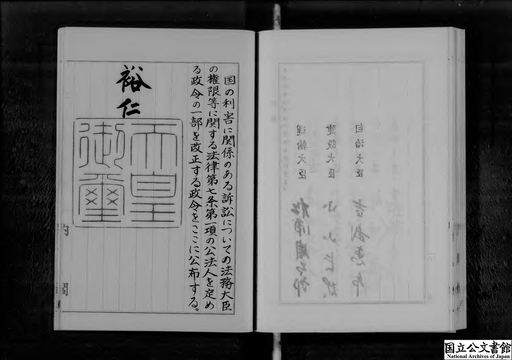 国の利害に関係のある訴訟についての法務大臣
の権限等に関する法律第七条第一項の公法人を定め
る政令の一部を改正する政令をここに公布する。
裕仁
天皇
御璽
自治大臣
建設大臣
運輸大臣
国立公文書館
National Archives of Japan